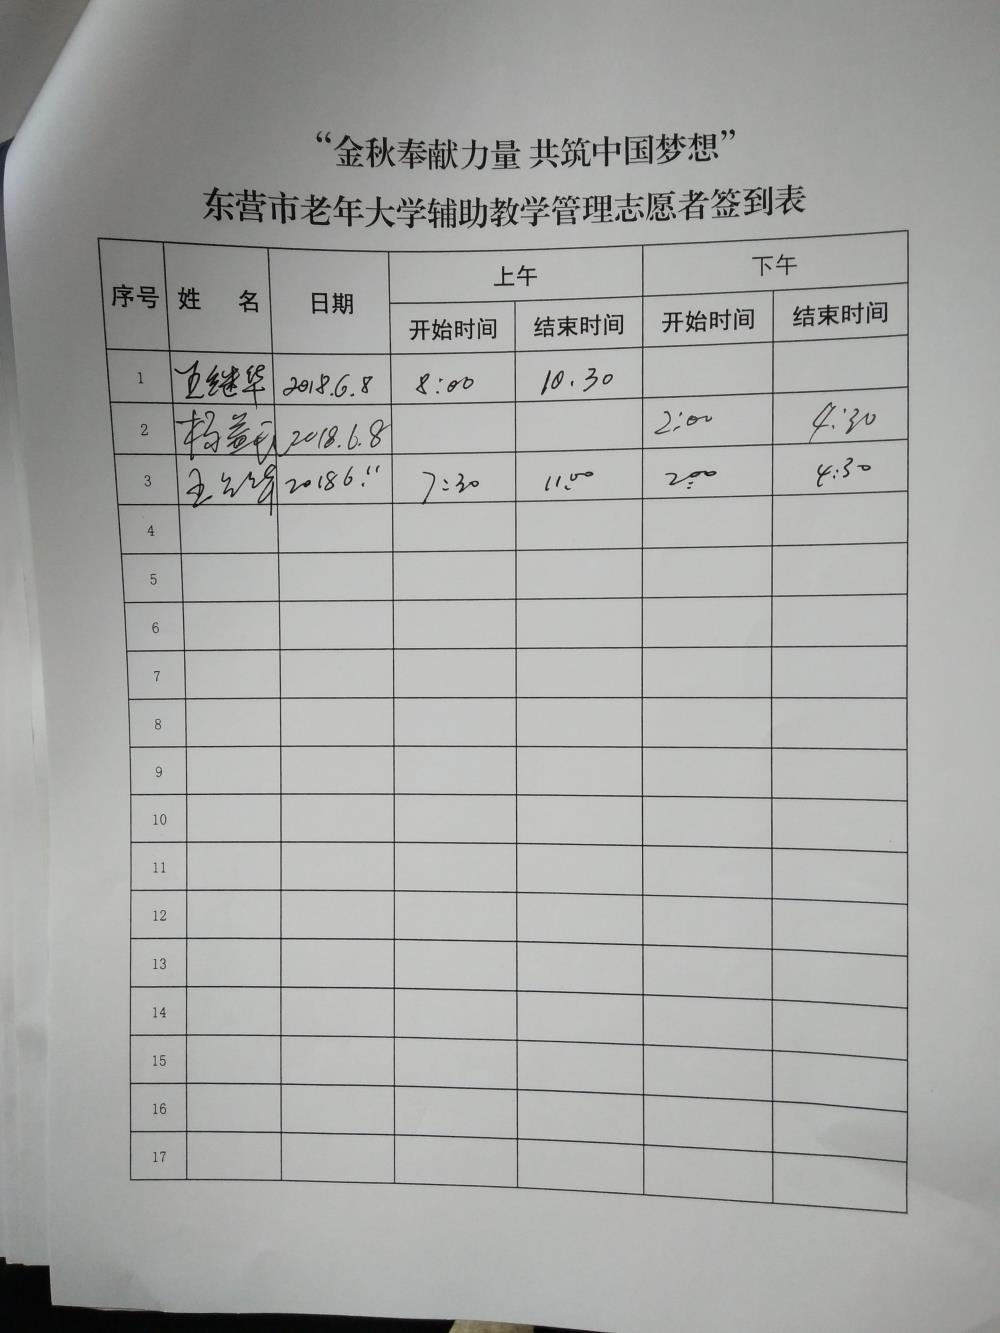 “金秋奉献力量 共筑中国梦想”
东营市老年大学辅助教学管理志愿者签到表
序号 姓 名 日期 上午 下午
开始时间 结束时间 开始时间 结束时间
1 王继华 2018.6.8 8:00 10.30
2 杨益民 2018.6.8 2:00 4:30
3 王 20186.11 7:30 11:00 2:00 4:30
4
5
6
7
8
9
10
11
12
13
14
15
16
17